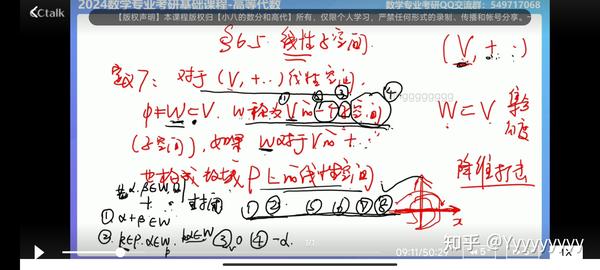 Ctalk
2024数学专业考研基础课程-高等代数
数学专业考研QQ交流群:549717068
【版权声明】本课程版权归【小八的数分和高代】所有,仅限个人学习,严禁任何形式的录制、传播和帐号分享。
§6.5 线性子空间.
(V, + ·)
定义7: 对于(V, +··)线性空间,
① ② ③ ④
φ≠W⊂V. W称为V的一个子空间
gggggggg
W⊂V 集合
角度
(子空间), 如果 W对于V的 + ··
也构成数域 P上的线性空间
降维打击
α.β∈W
+ · 封闭
① ② ⑤ ⑥ ⑦ ⑧
① α+β∈W
x
② k∈P. α∈W. kα∈W ③ 0 ④ -α.
1/1
09:11/50:29
知乎 @Yyyyyyyyy